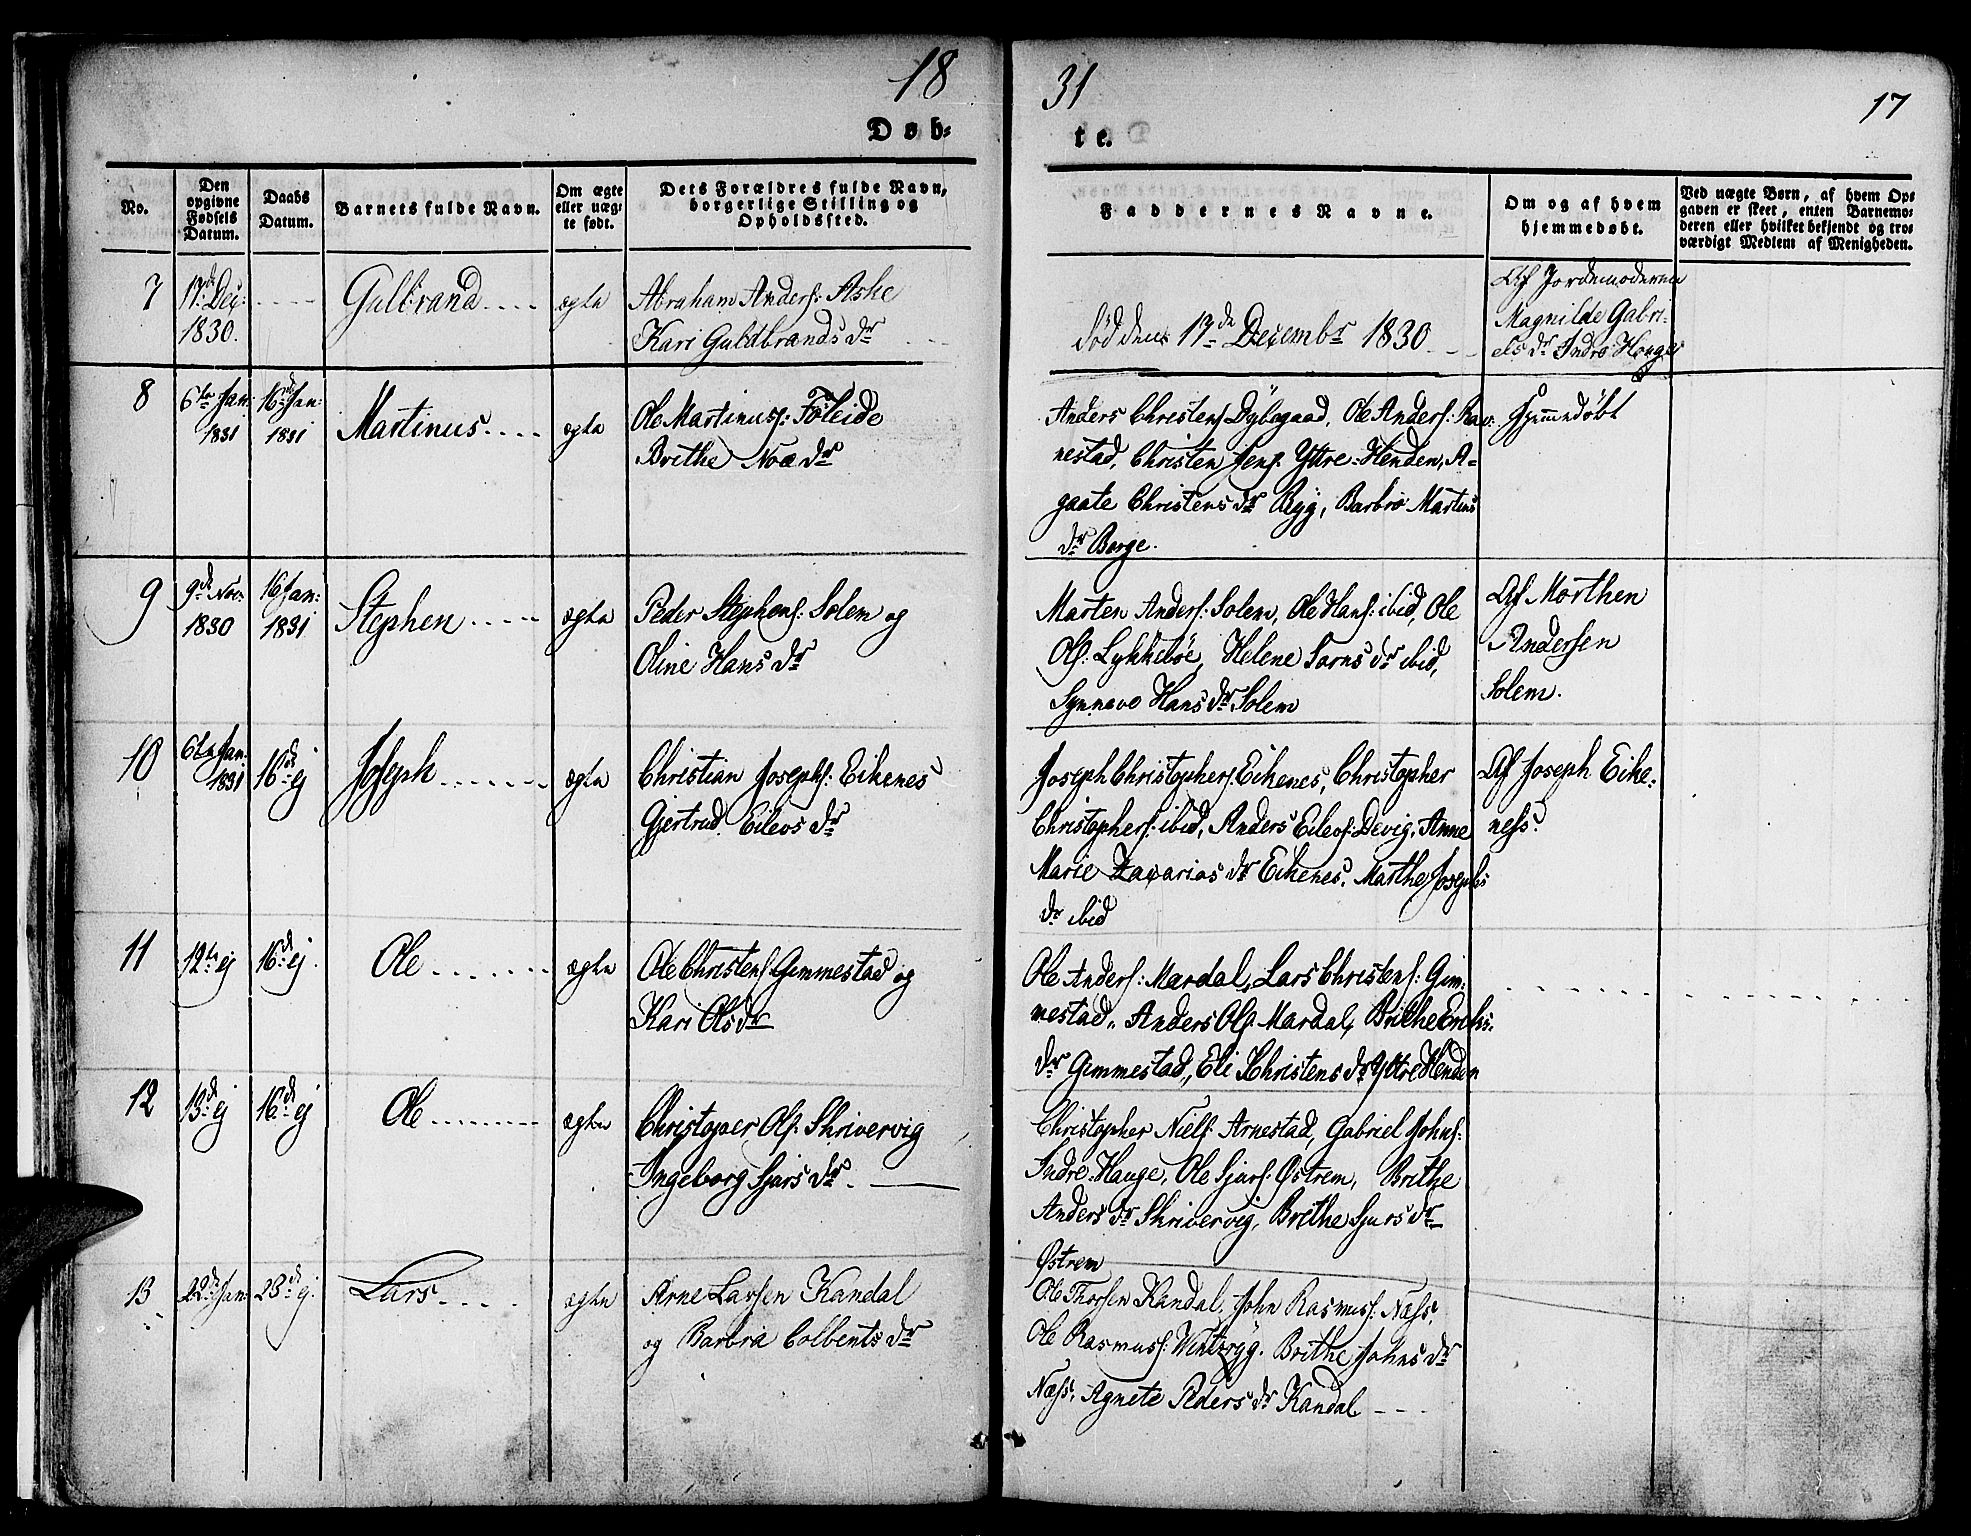 18
31
17
Døb-
te.
No.
Den
opgivne
Fødsels
Datum.
Daabs
Datum.
Barnets fulde Navn.
Om ægte
eller uæg-
te født.
Dets Forældres fulde Navn,
borgerlige Stilling og
Opholdssted.
Faddernes Navne.
Om og af hvem
hjemmedøbt.
Ved uægte Børn, af hvem Op-
gaven er skeet, enten Barnemo-
deren eller hvilket bekjendt og tro-
værdigt Medlem af Menigheden.
7
17de Dec:
1830.
Gulbrand....
ægte
Abraham Anders: Aske
Kari Guldbrands dr
død den 17de Decembr 1830
Af Jordemoderen
Magnilde Gabri-
els dr Indre Houge
8
6te Jan:
1831
16de Jan:
1831
Martinus....
ægte
Ole Martinus: Føleide
Brithe Noæ dr
Anders Christens: Dybegaad, Ole Anders: Rav-
nestad, Christen Jens: Yttre-Henden, A-
gaate Christens dr Ryg, Barbro Martins
dr Berge.
Hjemmedøbt
9
9de Nov:
1830
16 Jan:
1831
Stephen.....
ægte
Peder Stephens: Solem og
Oline Hans dr
Marten Anders: Solem, Ole Hans: ibid, Ole
Ols: Lykkebøe, Helene Sorns dr ibid,
Synneve Hans dr Solem
Af Morthen
Andersen
Solem.
10
6te Jan:
1831
16de ej
Joseph.......
ægte
Christian Josephs: Eikenes
Gjertrud Eilevs dr
Joseph Christophers: Eikenes, Christopher
Christophers: ibid, Anders Eilevs: Devig, Anne
Marie Zacarias dr Eikenes, Marthe Josephs
dr ibid
Af Joseph Eike-
ness.
11
12te ej
16de ej.
Ole.......
ægte
Ole Christens: Gimmestad og
Kari Ols dr
Ole Anders: Mardal, Lars Christens: Gim-
mestad, Anders Ols: Mardal, Brithe Eriks:
dr Gimmestad, Eli Christens dr Yttre Henden
12
13de ej
16de ej
Ole........
ægte
Christopher Ols: Skrivervig
Ingeborg Sjurs dr.
Christopher Niels: Arnestad, Gabriel Johns:
Indre-Hauge, Ole Sjurs: Østrem, Brithe
Anders dr Skrivervig, Brithe Sjurs dr
Østrem
13
22de Jan:
23de ej.
Lars....
ægte
Arne Larsen Kandal
og Barbra Colbents dr
Ole Thorsen Kandal, John Rasmus: Næss.
Ole Rasmus: Wintryg. Brithe Johns dr
Næss, Agnete Peders dr Kandal